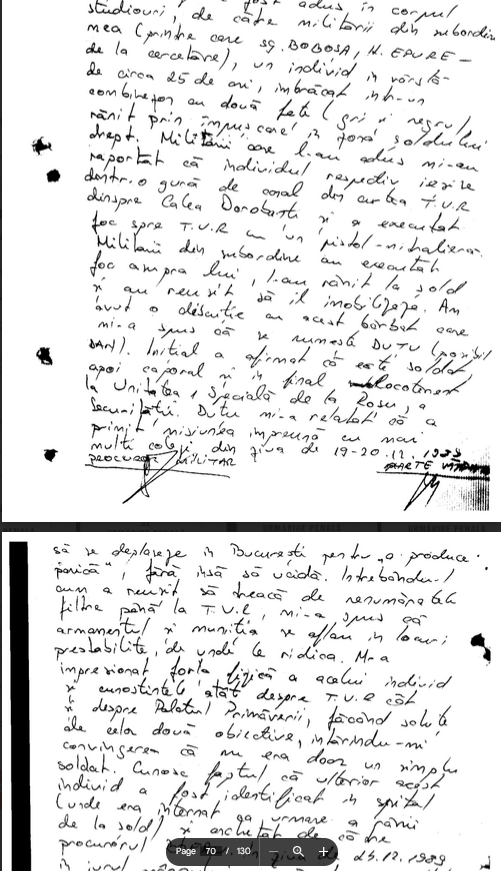 studiouri, de către militarii din subordinea
mea (printre care sg. BOBOSA, N. EPURE -
de la cercetare), un individ în vârstă
de circa 25 de ani, îmbrăcat într-un
combinezon cu două fețe (gri și negru)
rănit prin împușcare în zona șoldului
drept. Militarii care l-au adus mi-au
raportat că individul respectiv ieșise
dintr-o gură de canal din curtea T.V.R
dinspre Calea Dorobanți și a executat
foc spre T.V.R cu un pistol-mitralieră.
Militarii din subordine au executat
foc asupra lui, l-au rănit la șold
și au reușit să îl imobilizeze. Am
avut o discuție cu acest bărbat care
mi-a spus că se numește DUTU (posibil
DAN). Inițial a afirmat că este soldat
apoi caporal și în final locotenent
la Unitatea Specială de la Roșu, a
Securității. Dutu mi-a relatat că a
primit misiunea împreună cu mai
mulți colegi din ziua de 19-20.12.1989
PROCUROR MILITAR
PARTE
să se deplaseze în București pentru "a produce
panică", fără însă să ucidă. Întrebându-l
cum a reușit să treacă de nenumăratele
filtre până la T.V.R, mi-a spus că
armamentul și muniția se aflau în locuri
prestabilite, de unde le ridica. M-a
impresionat forța fizică a acelui individ
și cunoștințele atât despre T.V.R cât
și despre Palatul Primăverii, făcând schițe
ale celor două obiective, întărindu-mi
convingerea că nu era doar un simplu
soldat. Cunosc faptul că ulterior acest
individ a fost identificat în spital
(unde era internat ca urmare a rănii
de la șold) și anchetat de către
procurorul în ziua de 24.12.1989
Page 70 / 130
în jurul